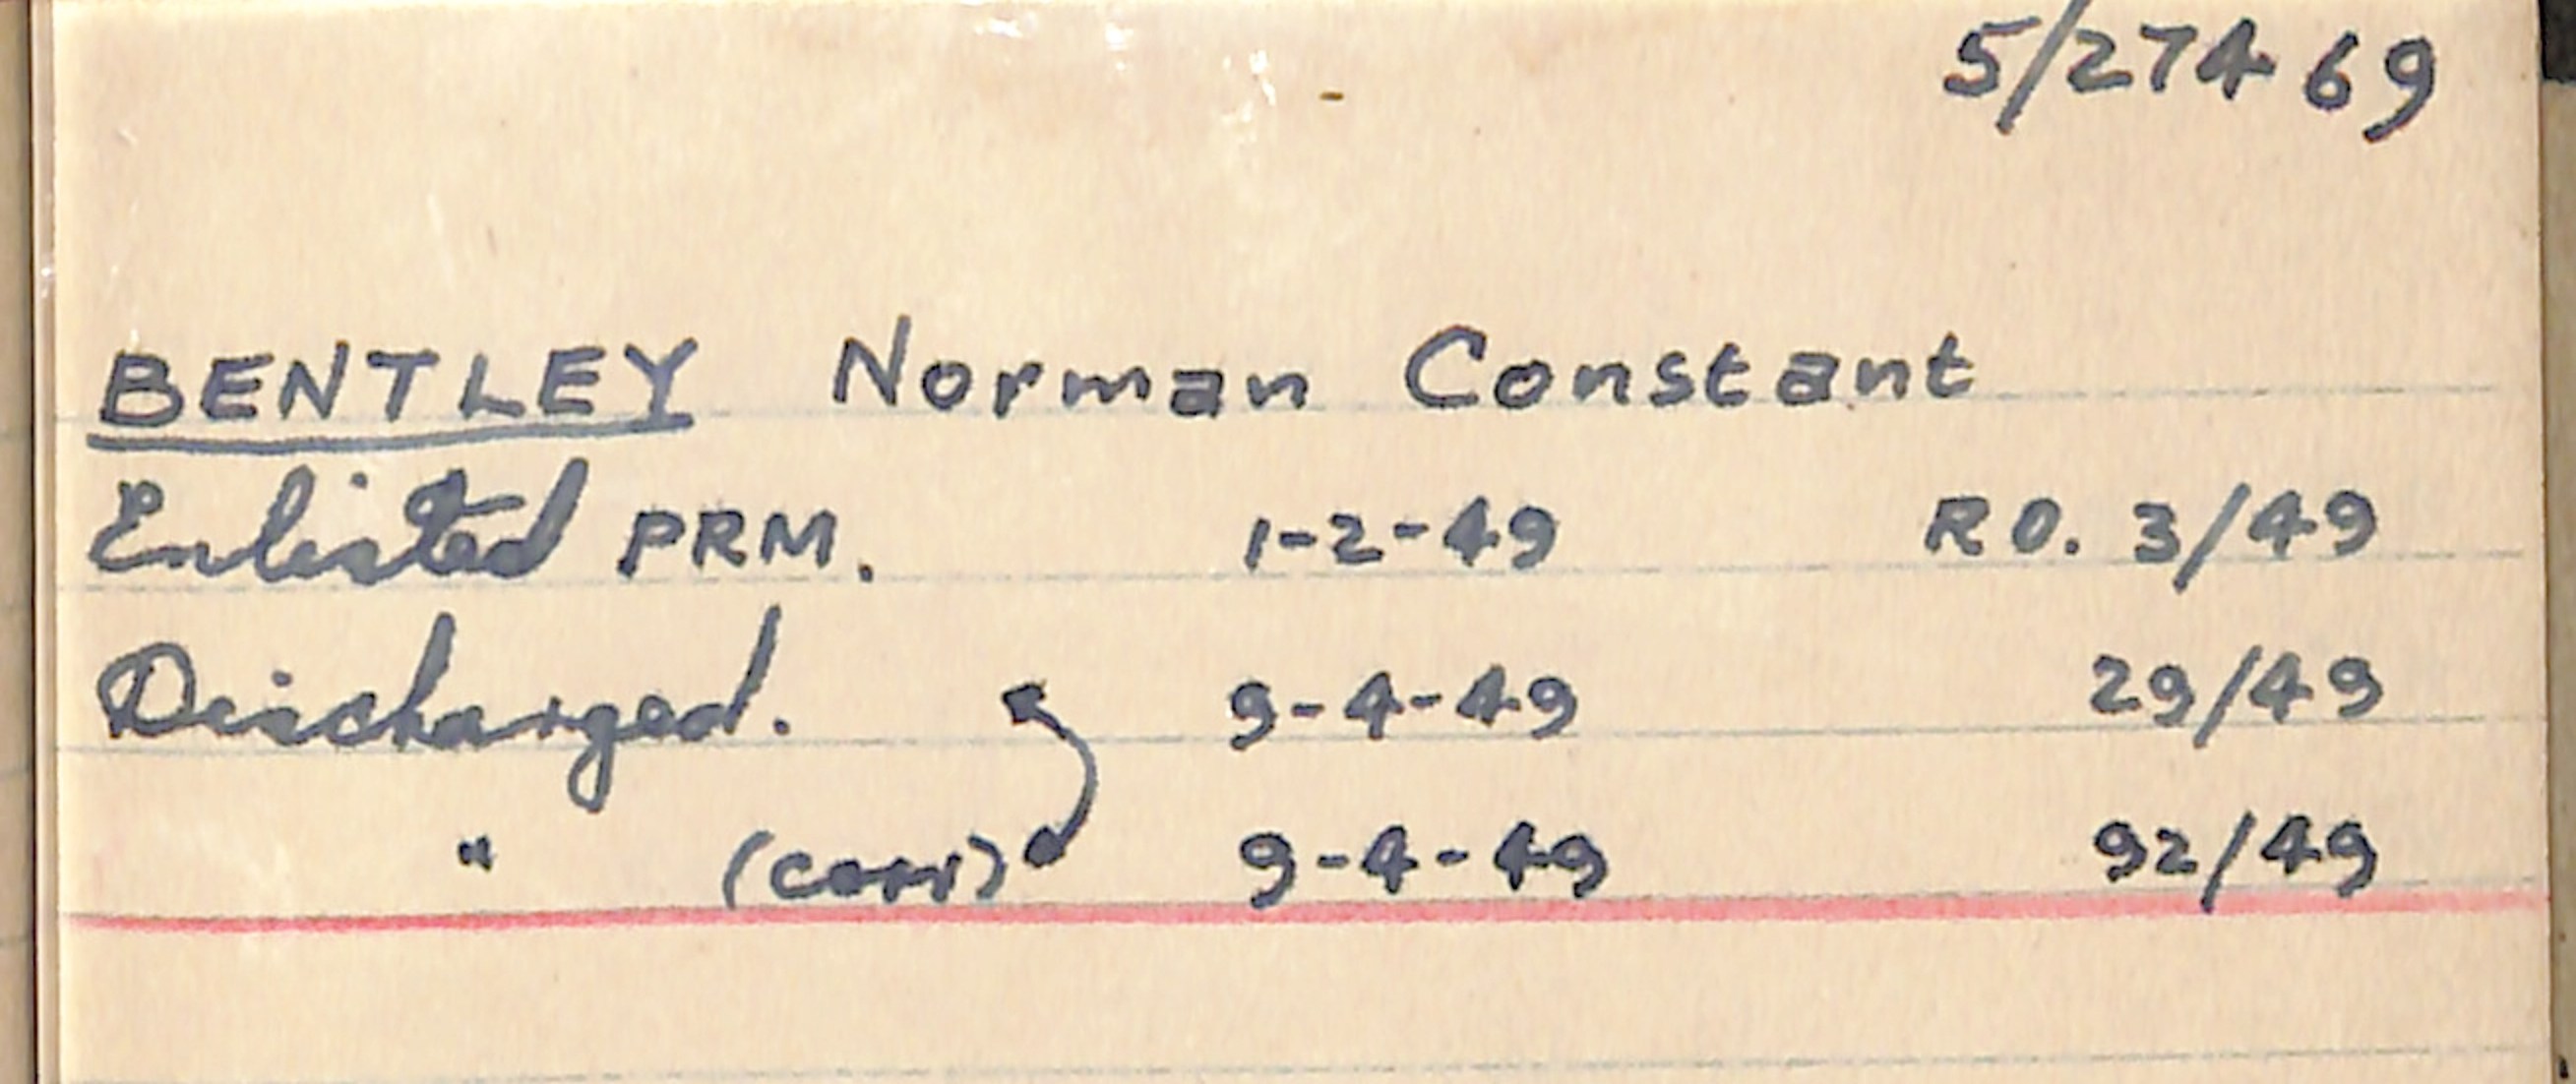 5/27469
BENTLEY Norman Constant
Enlisted PRM. 1-2-49 RO. 3/49
Discharged. 9-4-49 29/49
" (corr) 9-4-49 92/49